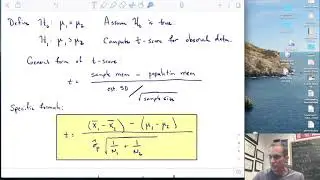 Define H₀: μ₁ = μ₂ Assume H₀ is true
H₁: μ₁ > μ₂ Compute t-score for observed data.
General form of t-score
t = sample mean − population mean / est. SD / √sample size
Specific formula:
t = (x̄₁ − x̄₂) − (μ₁ − μ₂) / σ̂ₚ √ 1/N₁ + 1/N₂